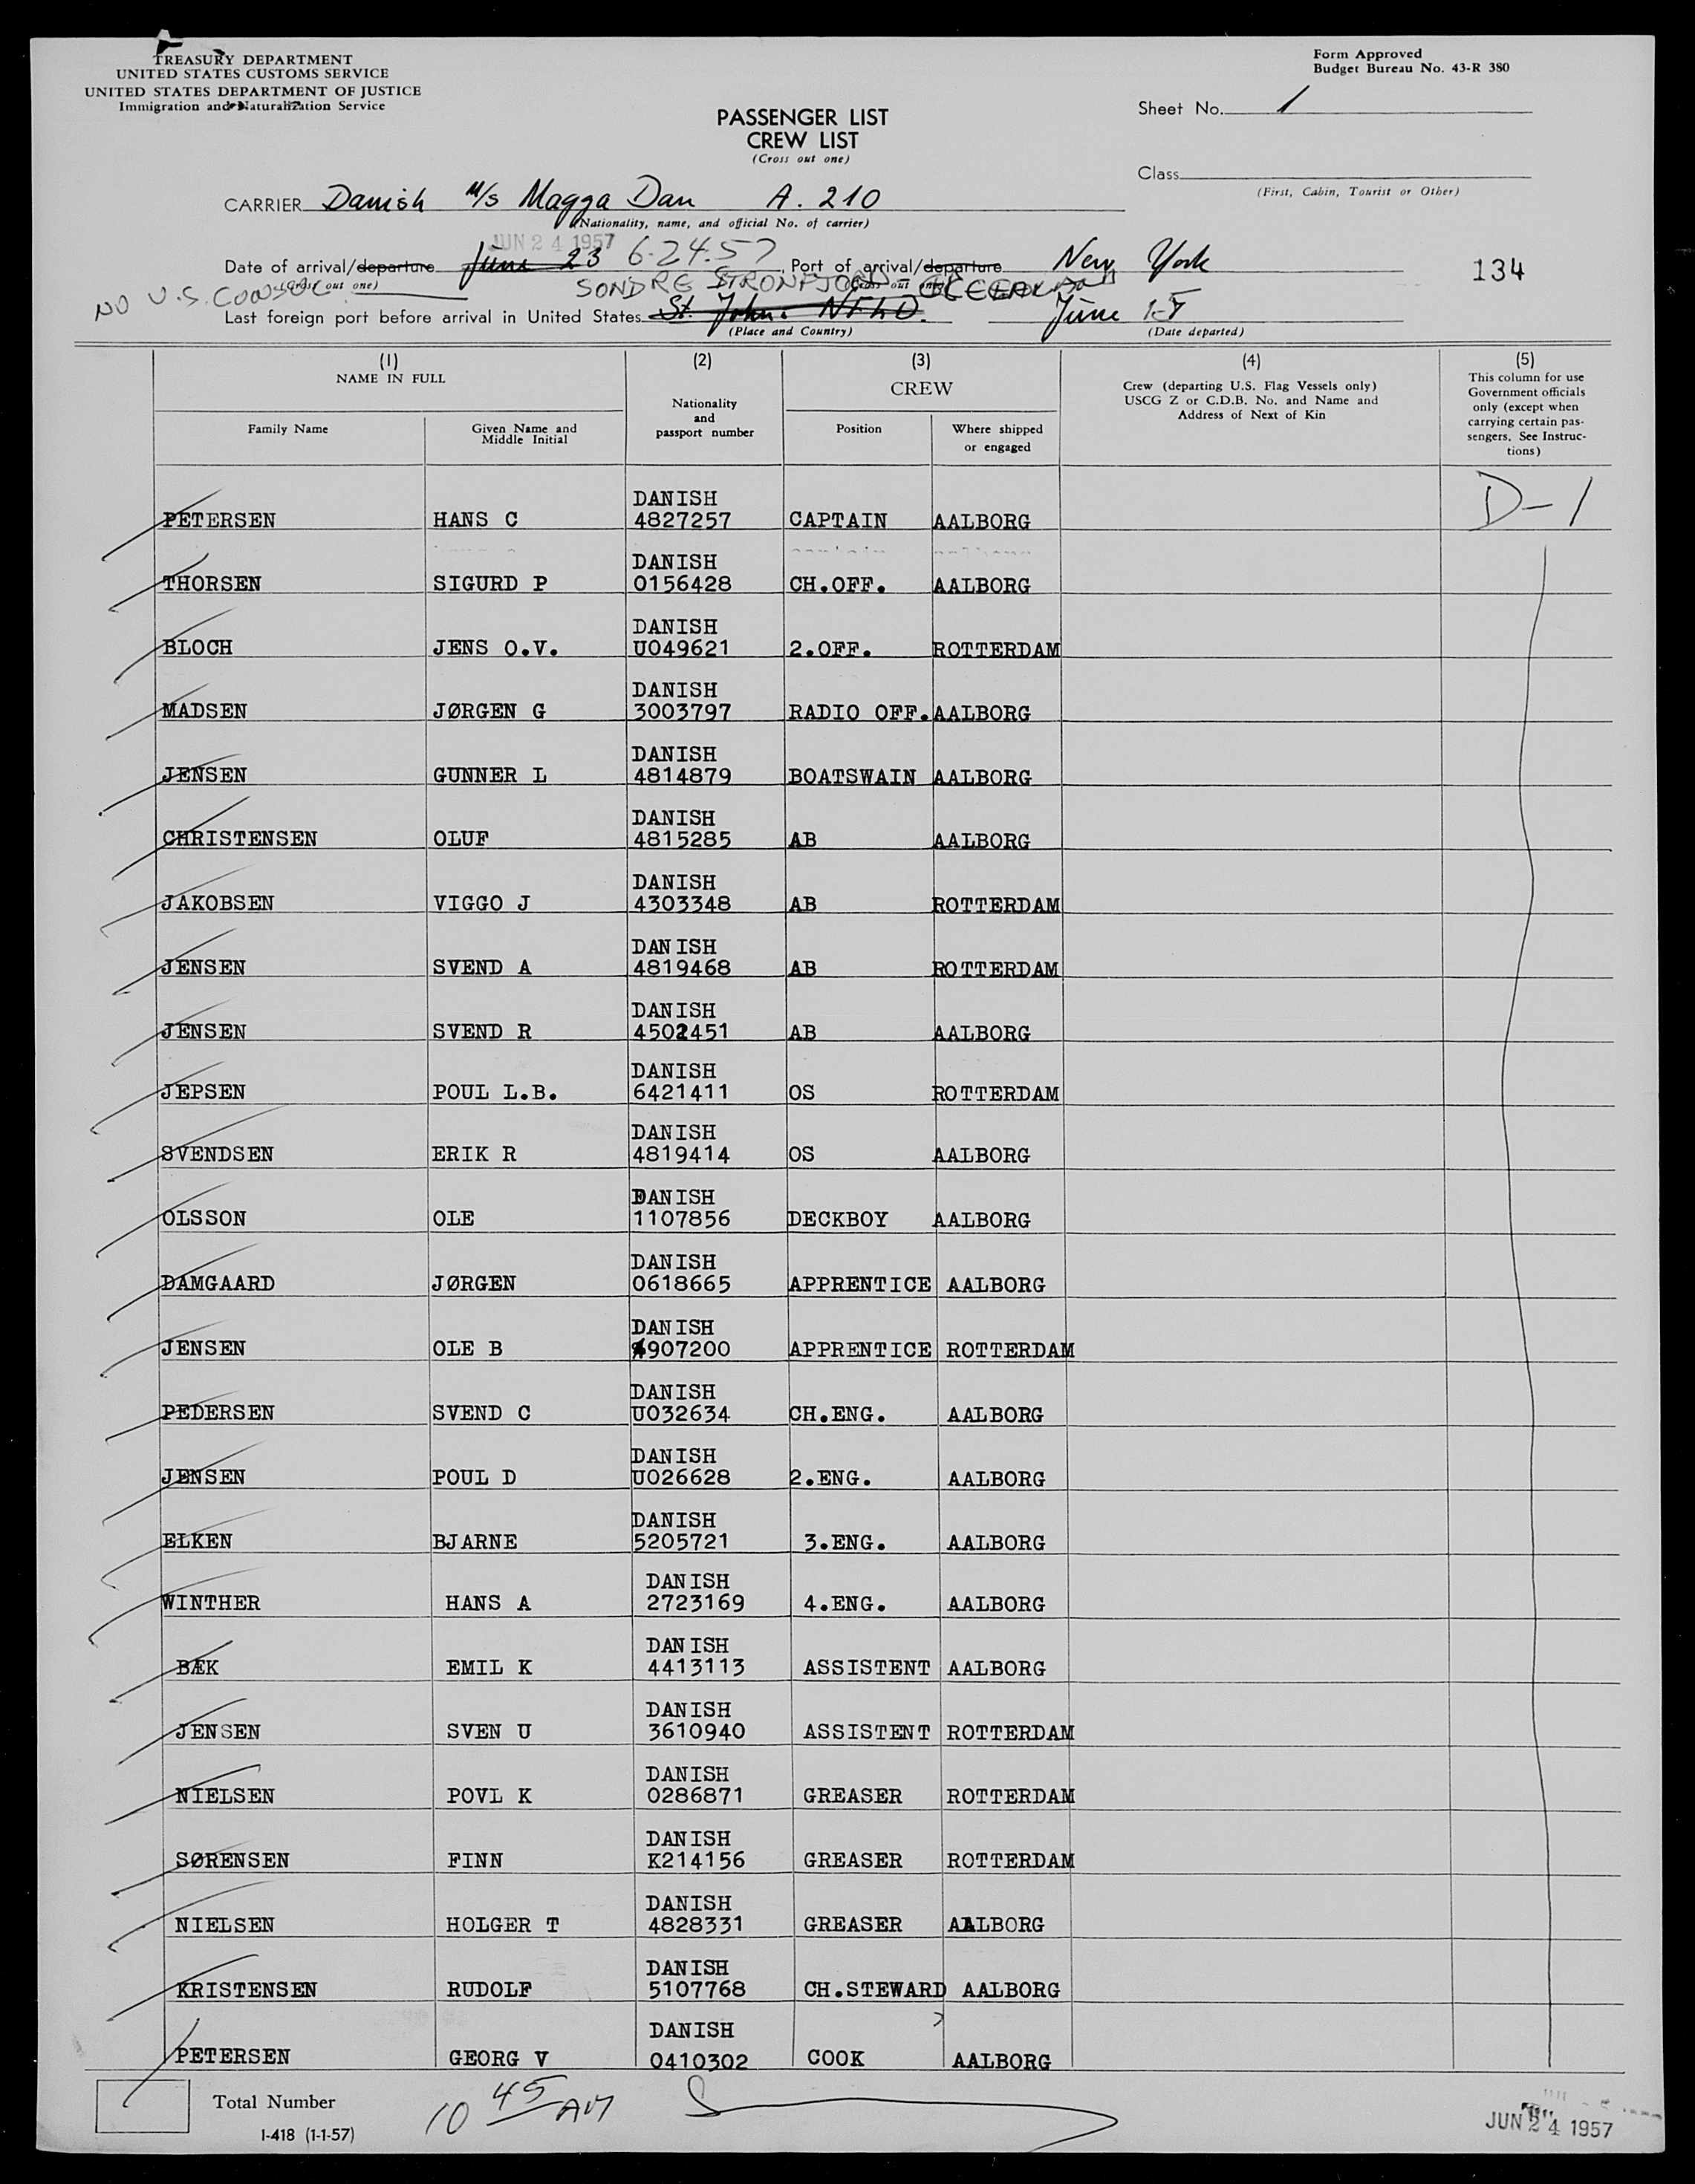 TREASURY DEPARTMENT
UNITED STATES CUSTOMS SERVICE
UNITED STATES DEPARTMENT OF JUSTICE
Immigration and Naturalization Service
Form Approved
Budget Bureau No. 43-R 380
PASSENGER LIST
CREW LIST
(Cross out one)
Sheet No. 1
Class
(First, Cabin, Tourist or Other)
CARRIER Danish M/s Magga Dan A. 210
(Nationality, name, and official No. of carrier)
JUN 24 1957
Date of arrival/departure June 23 6-24.57 Port of arrival/departure New York
134
(Cross out one) (Cross out one)
NO U.S. CONSUL SONDRE STRONFJORD
Last foreign port before arrival in United States St. Johns NFLD. June
(Place and Country) (Date departed)
(1) (2) (3) (4) (5)
NAME IN FULL
CREW
Family Name
Given Name and
Middle Initial
Nationality
and
passport number
Position
Where shipped
or engaged
Crew (departing U.S. Flag Vessels only)
USCG Z or C.D.B. No. and Name and
Address of Next of Kin
This column for use
Government officials
only (except when
carrying certain pas-
sengers. See Instruc-
tions)
DANISH
PETERSEN HANS C 4827257 CAPTAIN AALBORG D-1
DANISH
THORSEN SIGURD P 0156428 CH.OFF. AALBORG
DANISH
BLOCH JENS O.V. U049621 2.OFF. ROTTERDAM
DANISH
MADSEN JØRGEN G 3003797 RADIO OFF. AALBORG
DANISH
JENSEN GUNNER L 4814879 BOATSWAIN AALBORG
DANISH
CHRISTENSEN OLUF 4815285 AB AALBORG
DANISH
JAKOBSEN VIGGO J 4303348 AB ROTTERDAM
DANISH
JENSEN SVEND A 4819468 AB ROTTERDAM
DANISH
JENSEN SVEND R 4502451 AB AALBORG
DANISH
JEPSEN POUL L.B. 6421411 OS ROTTERDAM
DANISH
SVENDSEN ERIK R 4819414 OS AALBORG
DANISH
OLSSON OLE 1107856 DECKBOY AALBORG
DANISH
DAMGAARD JØRGEN 0618665 APPRENTICE AALBORG
DANISH
JENSEN OLE B 4907200 APPRENTICE ROTTERDAM
DANISH
PEDERSEN SVEND C U032634 CH.ENG. AALBORG
DANISH
JENSEN POUL D U026628 2.ENG. AALBORG
DANISH
ELKEN BJARNE 5205721 3.ENG. AALBORG
DANISH
WINTHER HANS A 2723169 4.ENG. AALBORG
DANISH
BÆK EMIL K 4413113 ASSISTENT AALBORG
DANISH
JENSEN SVEN U 3610940 ASSISTENT ROTTERDAM
DANISH
NIELSEN POVL K 0286871 GREASER ROTTERDAM
DANISH
SØRENSEN FINN K214156 GREASER ROTTERDAM
DANISH
NIELSEN HOLGER T 4828331 GREASER AALBORG
DANISH
KRISTENSEN RUDOLF 5107768 CH.STEWARD AALBORG
DANISH
PETERSEN GEORG V 0410302 COOK AALBORG
Total Number
10 45 AM
I-418 (1-1-57)
JUN 24 1957